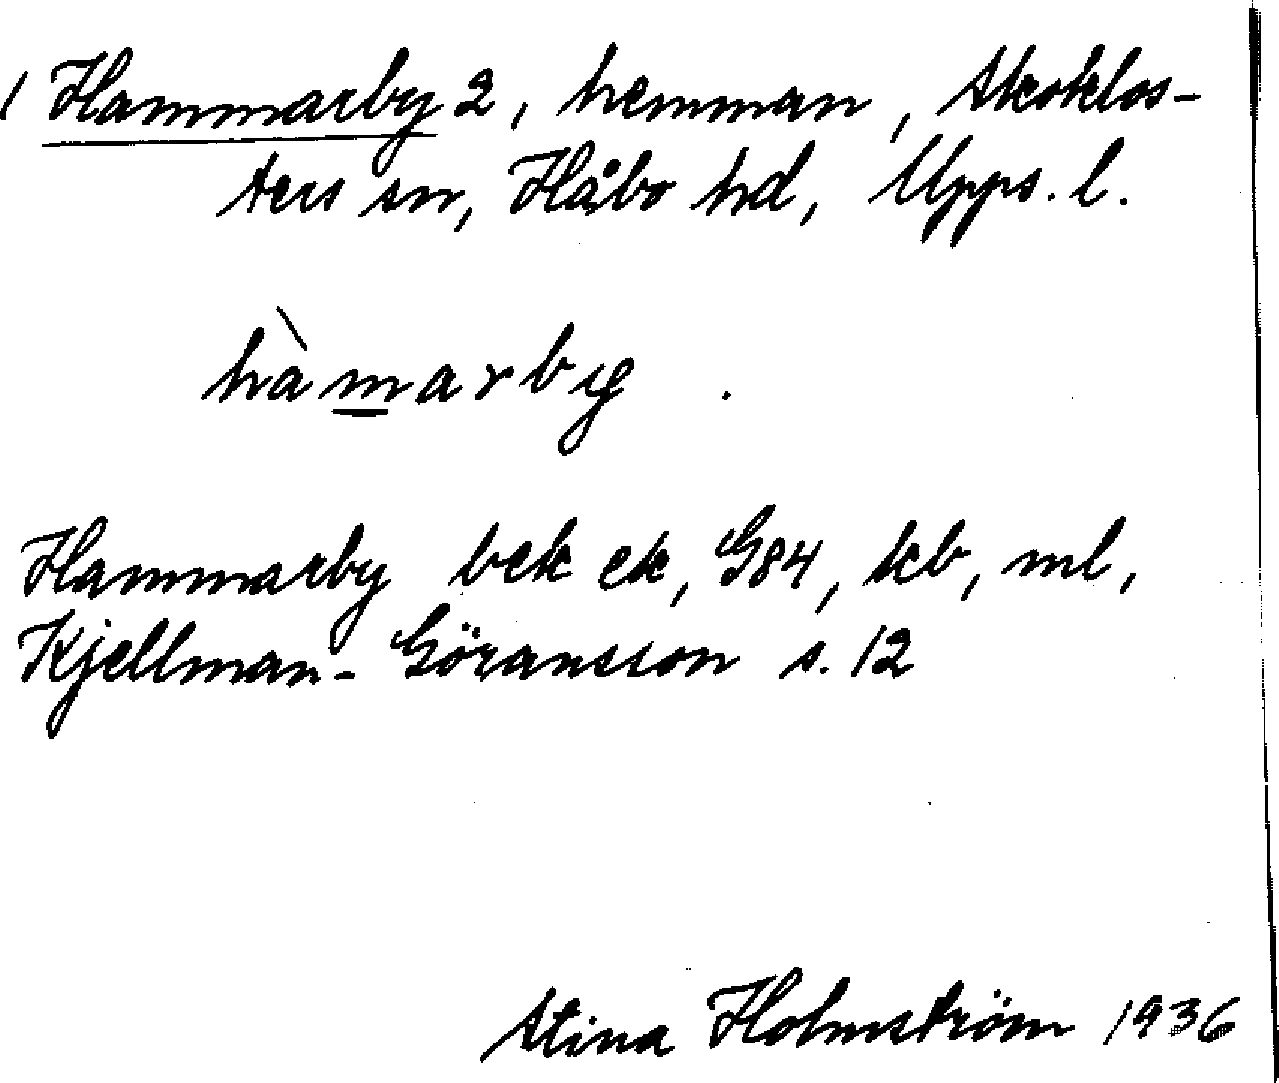 / Hammarby 2, hemman, Skoklos-
ters sn, Håbo hd, Upps. l.
hàmarby .
Hammarby bek ek, G84, kb, ml,
Kjellman-Göransson s. 12
Stina Holmström 1936